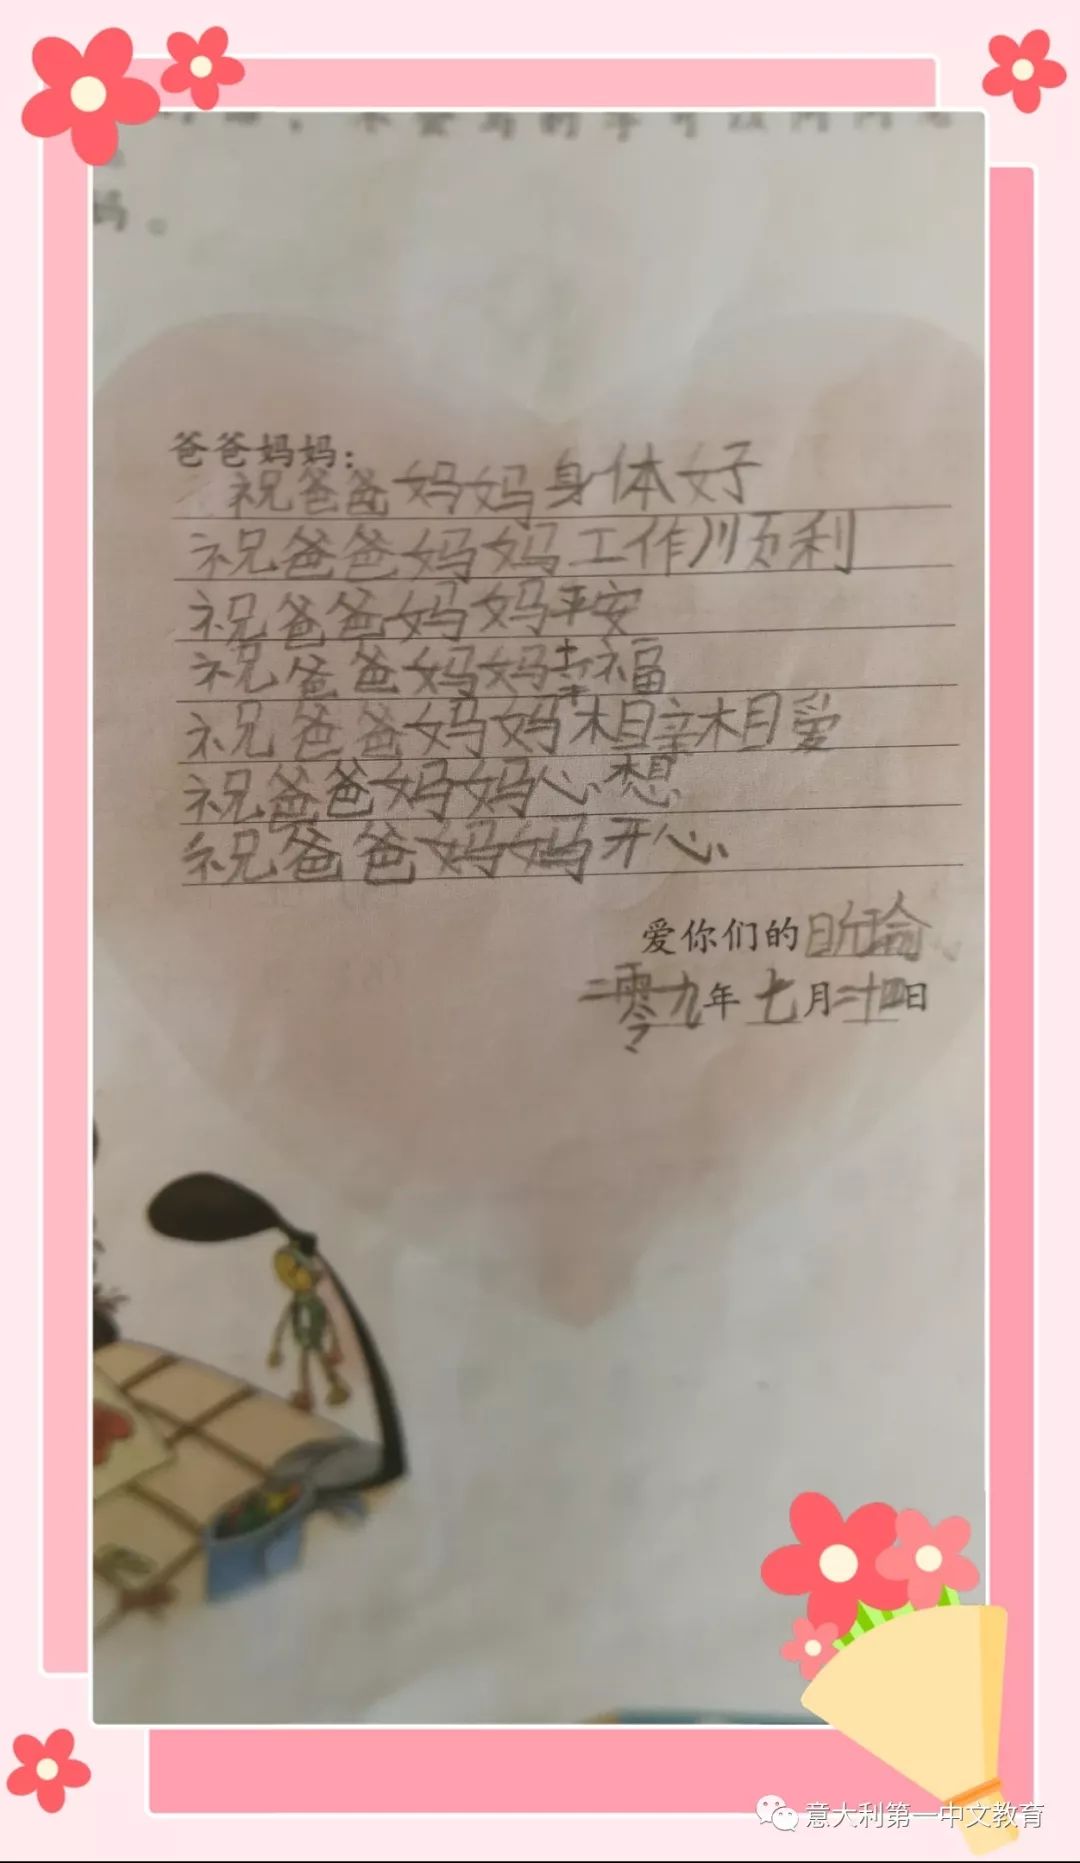 不会写的字可以问问
妈。
爸爸妈妈：
祝爸爸妈妈身体好
祝爸爸妈妈工作顺利
祝爸爸妈妈平安
祝爸爸妈妈幸福
祝爸爸妈妈相亲相爱
祝爸爸妈妈心想
祝爸爸妈妈开心
爱你们的瑜
二零一九年七月二十四日
意大利第一中文教育